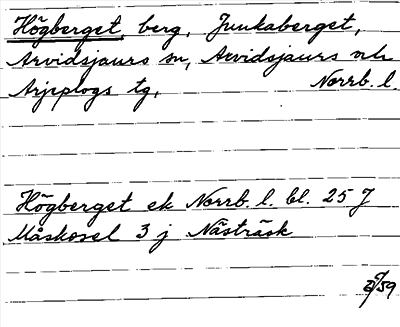 Högberget, berg, Juukaberget,
Arvidsjaurs sn, Arvidsjaurs och
Arjeplogs tg, Norrb. l.
Högberget ek Norrb. l. bl. 25 J
Måskosel 3 j Nästräsk